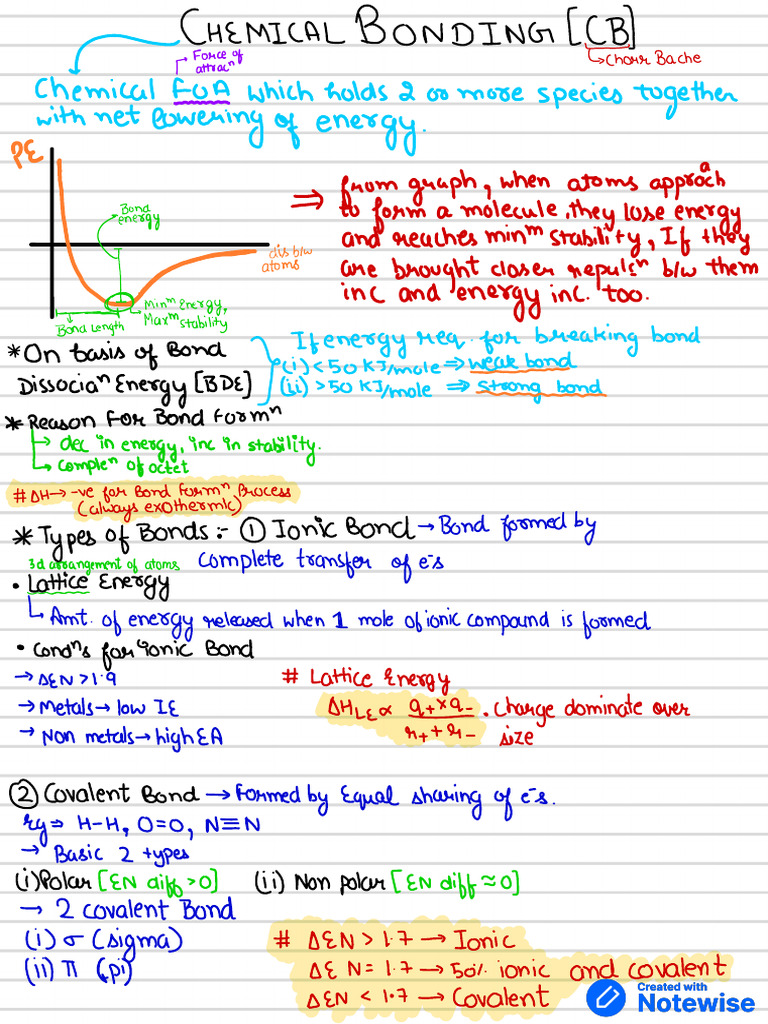 CHEMICAL BONDING [CB]
Force of
attracⁿ
→ Chorr Bache
Chemical FOA which holds 2 or more species together
with net lowering of energy.
PE
Bond
energy
dis b/w
atoms
Bond Length
Minᵐ Energy,
Maxᵐ stability
⇒ from graph, when atoms approach
to form a molecule, they lose energy
and reaches minᵐ stability, If they
are brought closer repulsⁿ b/w them
inc and energy inc. too.
* On basis of Bond
Dissociaⁿ Energy [BDE]
If energy req. for breaking bond
(i) < 50 KJ/mole ⇒ weak bond
(ii) > 50 KJ/mole ⇒ strong bond
* Reason For Bond Formⁿ
→ dec in energy, inc in stability.
→ Compleⁿ of octet
# ΔH → -ve for Bond Formⁿ Process
(always exothermic)
* Types of Bonds :- ① Ionic Bond → Bond formed by
complete transfer of e⁻s
3d arrangement of atoms
• Lattice Energy
→ Amt. of energy released when 1 mole of ionic compound is formed
• Condⁿs for ionic Bond
→ ΔEN > 1.9
→ Metals → low IE
→ Non metals → high EA
# Lattice Energy
ΔH_LE ∝ q₊ × q₋ / r₊ + r₋ . Charge dominate over
size
② Covalent Bond → Formed by Equal sharing of e⁻s.
eg ⇒ H-H, O=O, N≡N
→ Basic 2 types
(i) Polar [EN diff > 0] (ii) Non polar [EN diff ≈ 0]
→ 2 covalent Bond
(i) σ (sigma)
(ii) π (pi)
# ΔEN > 1.7 → Ionic
ΔEN = 1.7 → 50% ionic and covalent
ΔEN < 1.7 → Covalent
Created with
Notewise